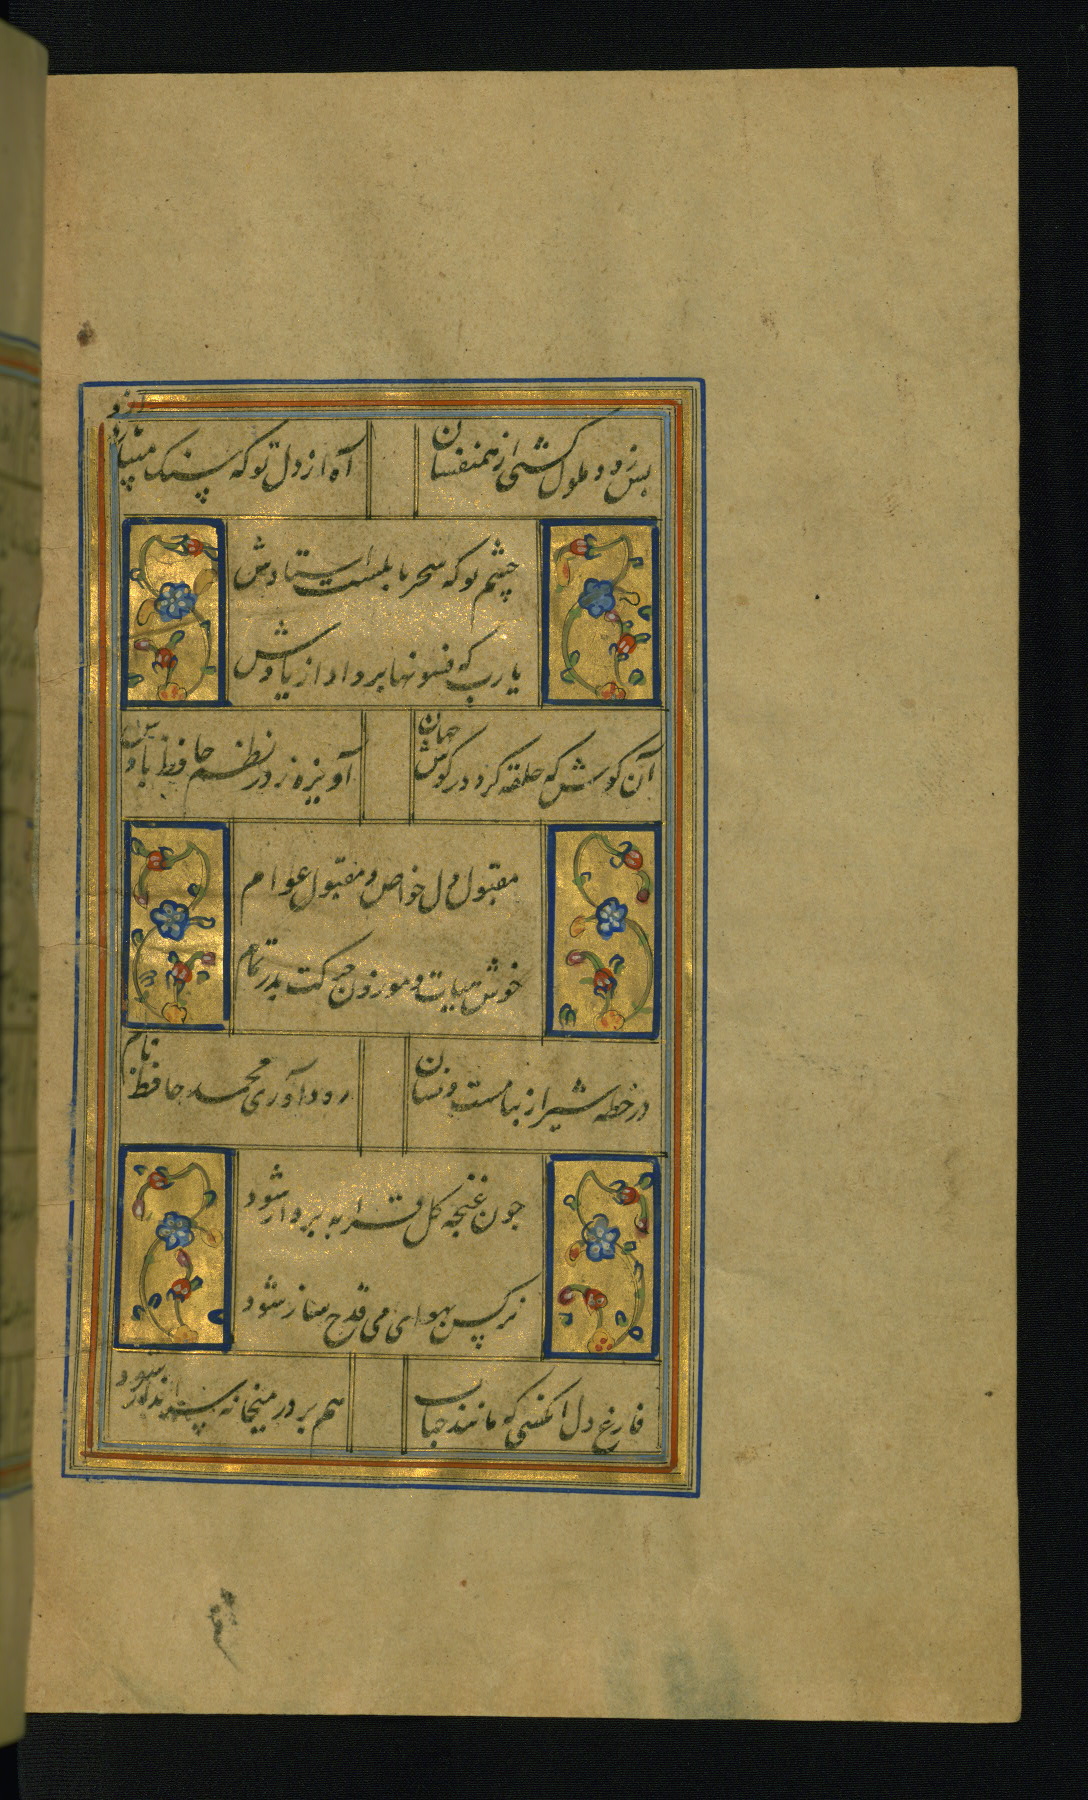 بس زود ملول گشتی از همنفسان
آه از دل تو که سنک میشیانزد
چشم تو که سحر بابلست استادش
یا رب که فسونها برواد از یادش
آن کوش که حلقه کرد در کوش جهان
آویزه ز در نظم حافظ بادش
مقبول دل خواص و مقبول عوام
خوش هیات و موزون حرکت بدر تمام
در خطه شیراز بنامست و نشان
رود آوری محمد حافظ نام
جون غنجه کل قرابه پرداز شود
نرکس بهوای می قدح ساز شود
فارغ دل آنکسی که مانند حباب
هم بر در میخانه سرانداز شود